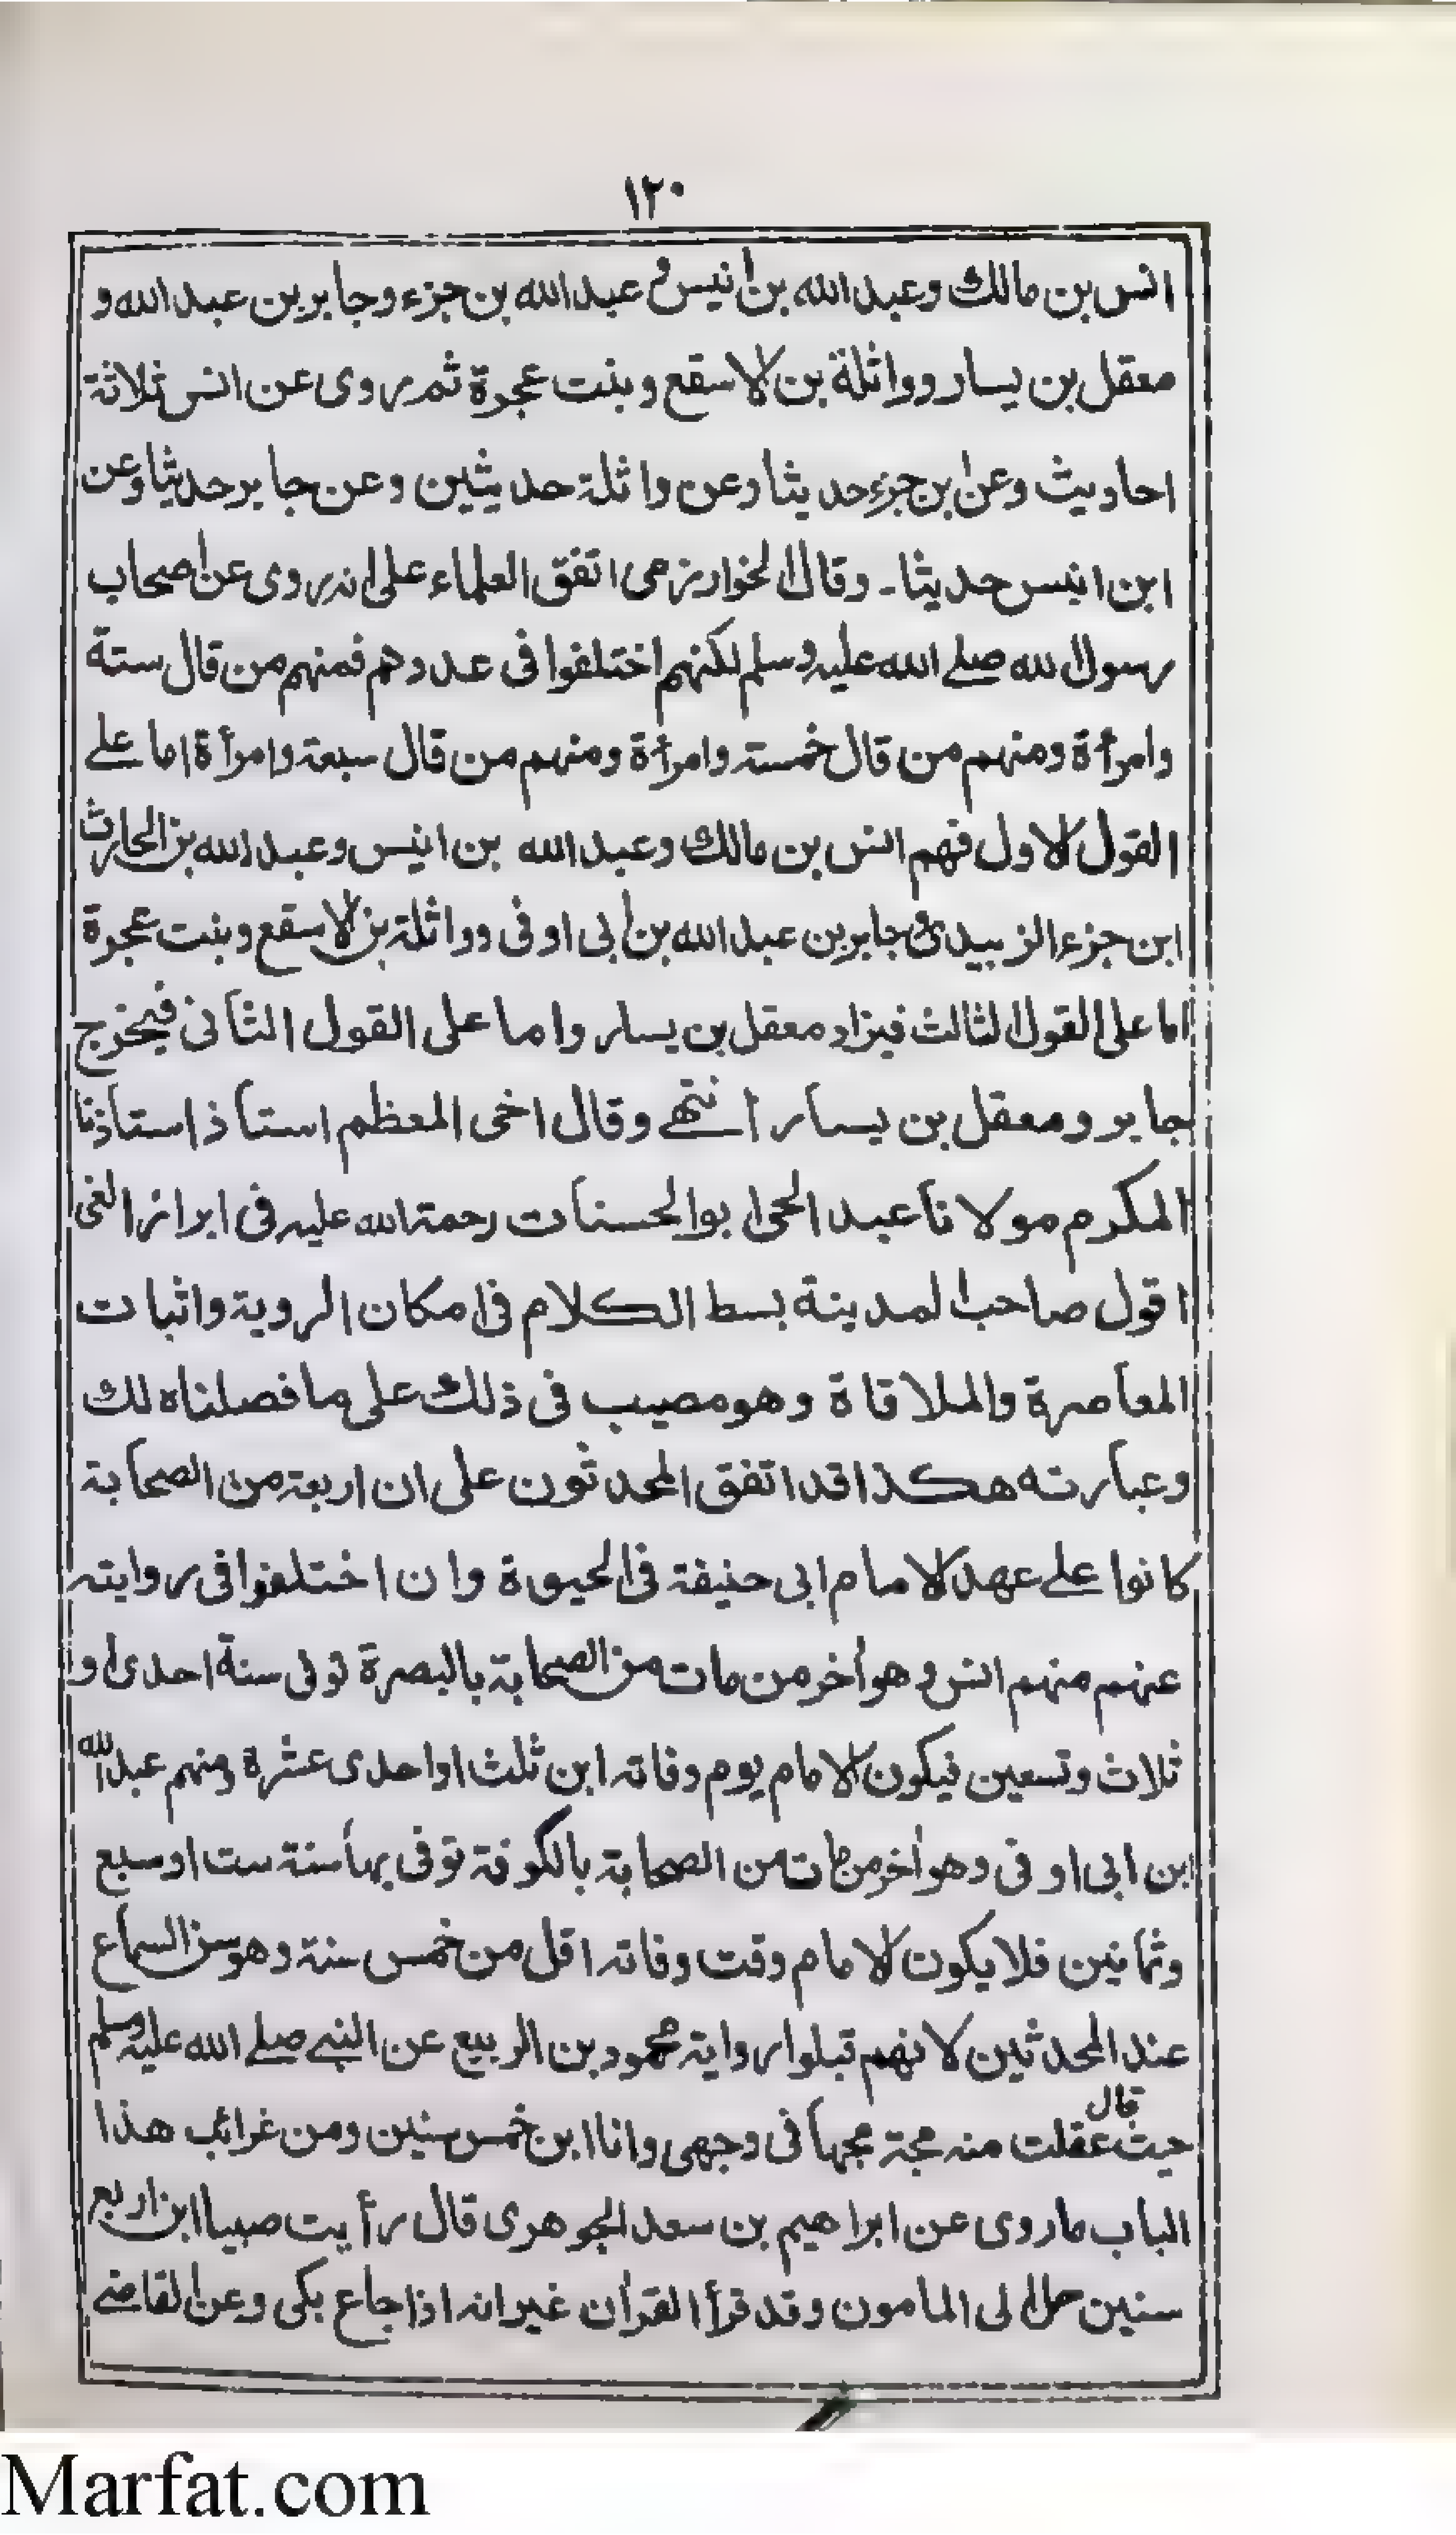 ١٢٠
انس بن مالك وعبد الله بن انيس و عبد الله بن جزء وجابر بن عبد الله و
معقل بن يسار وواثلة بن الاسقع وبنت عجرة ثم روى عن انس ثلاثة
احاديث وعن ابن جزء حديثا وعن واثلة حديثين وعن جابر حديثا وعن
ابن انيس حديثا۔ وقال الخوارزمى اتفق العلماء على انه روى عن اصحاب
رسول الله صلے الله عليه وسلم لكنهم اختلفوا فى عددهم فمنهم من قال ستة
وامرأة ومنهم من قال خمسة وامرأة ومنهم من قال سبعة وامرأة اما علے
القول الاول فهم انس بن مالك وعبد الله بن انيس وعبد الله بن الحارث
ابن جزء الزبيدى وجابر بن عبد الله بن ابى اوفى وواثلة بن الاسقع وبنت عجرة
اما على القول الثالث فيزاد معقل بن يسار واما على القول الثانى فيخرج
جابر ومعقل بن يسار انتهے وقال اخى المعظم استاذ استاذنا
المكرم مولانا عبد الحى ابو الحسنات رحمة الله عليه فى ابراز الغى
اقول صاحب المدينة بسط الكلام فى امكان الروية واثبات
المعاصرة والملاقاة وهو مصيب فى ذلك على ما فصلناه لك
وعبارته هكذا قد اتفق المحدثون على ان اربعة من الصحابة
كانوا علے عهد الامام ابى حنيفة فى الحيوة وان اختلفوا فى روايته
عنهم منهم انس وهو أخر من مات من الصحابة بالبصرة توفى سنة احدى او
ثلاث وتسعين فيكون الامام يوم وفاته ابن ثلث او احدى عشرة ومنهم عبد الله
ابن ابى اوفى وهو أخر من مات من الصحابة بالكوفة توفى بها سنة ست او سبع
وثمانين فلا يكون الامام وقت وفاته اقل من خمس سنة وهو سن السماع
عند المحدثين لانهم قبلوا رواية محمود بن الربيع عن النبے صلے الله عليه وسلم
حيث قال عقلت منه مجة مجها فى وجهى وانا ابن خمس سنين ومن غرائب هذا
الباب ماروى عن ابراهيم بن سعد الجوهرى قال رأيت صبيا ابن اربع
سنين حمل الى المامون وقد قرأ القرأن غير انه اذا جاع بكى وعن القاضے
Marfat.com